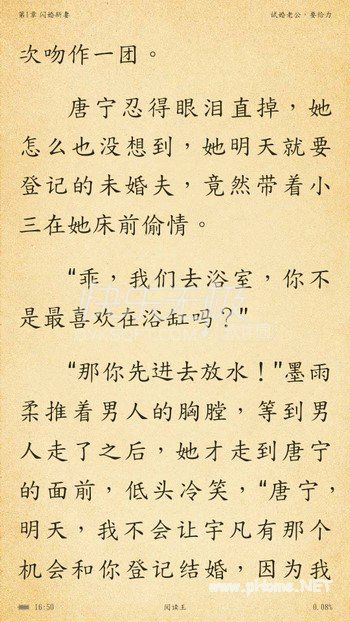 第1章 闪婚新妻 试婚老公，要给力
次吻作一团。
唐宁忍得眼泪直掉，她
怎么也没想到，她明天就要
登记的未婚夫，竟然带着小
三在她床前偷情。
“乖，我们去浴室，你不
是最喜欢在浴缸吗？”
“那你先进去放水！”墨雨
柔推着男人的胸膛，等到男
人走了之后，她才走到唐宁
的面前，低头冷笑，“唐宁，
明天，我不会让宇凡有那个
机会和你登记结婚，因为我
www.pHome.NET
16:50 阅读王 0.08%